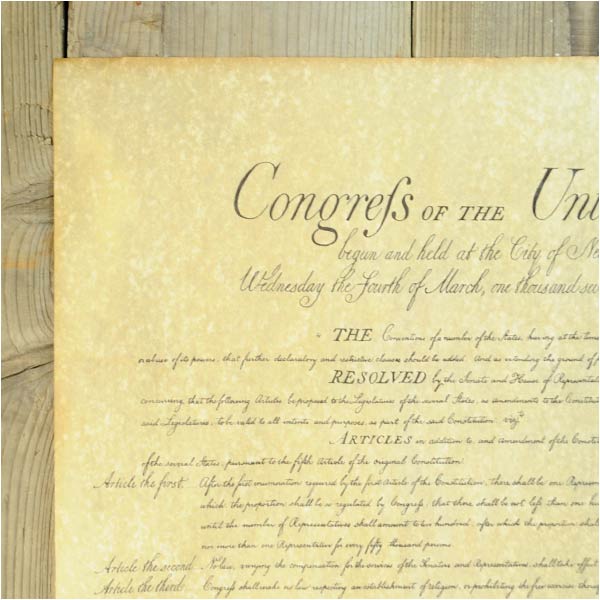 Congreſs OF THE Uni
begun and held at the City of Ne
Wednesday the Fourth of March, one thousand sev
THE Conventions of a number of the States, having at the time
or abuse of its powers, that further declaratory and restrictive clauses should be added. And as extending the ground of p
RESOLVED by the Senate and House of Representati
concurring that the following Articles be proposed to the Legislatures of the several States, as amendments to the Constituti
said Legislatures, to be valid to all intents and purposes, as part of the said Constitution. viz.t
ARTICLES in addition to, and amendment of the Constit
of the several States, pursuant to the fifth Article of the original Constitution.
Article the first. After the first enumeration required by the first Article of the Constitution, there shall be one Represen
which, the proportion shall be so regulated by Congreſs, that there shall be not leſs than one hu
until the number of Representatives shall amount to two hundred, after which the proportion shall
nor more than one Representative for every fifty thousand persons.
Article the second. No law, varying the compensation for the services of the Senators and Representatives, shall take effect
Article the third. Congreſs shall make no law respecting an establishment of religion, or prohibiting the free exercise thereof